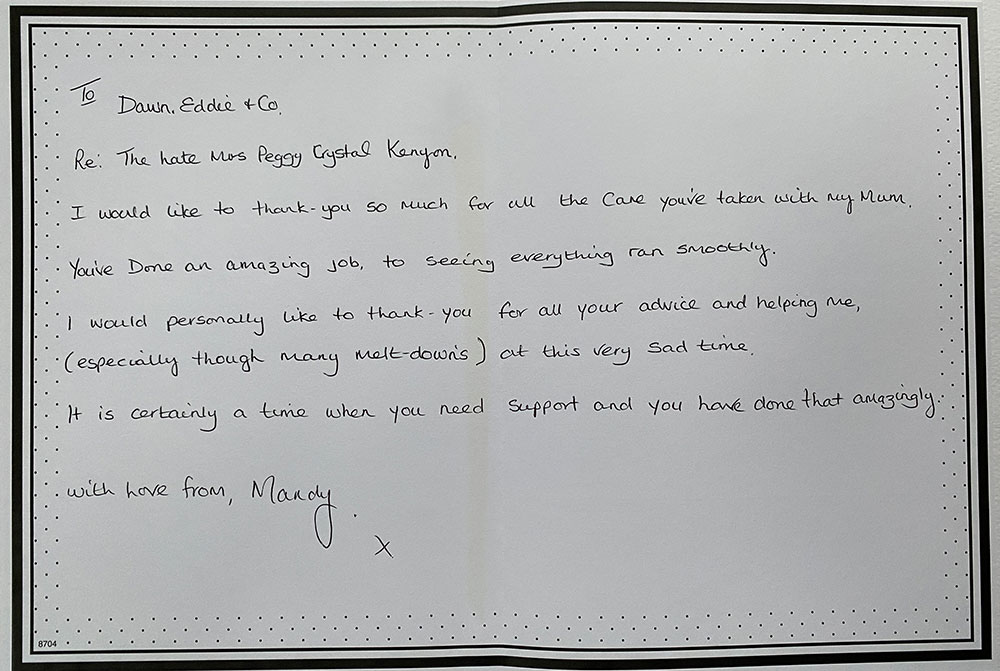 To
Dawn. Eddie + Co.
Re: The Late Mrs Peggy Crystal Kenyon.
I would like to thank-you so much for all the Care you've taken with my Mum.
You've Done an amazing job, to seeing everything ran smoothly.
I would personally like to thank-you for all your advice and helping me,
(especially though many melt-down's) at this very sad time.
It is certainly a time when you need support and you have done that amazingly.
with Love from, Mandy.
X
8704